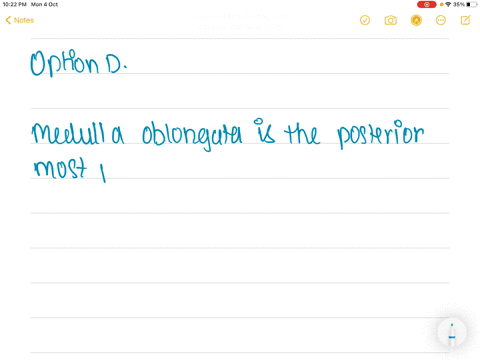 10:22 PM Mon 4 Oct
35%
Notes
Option D.
Medulla oblongata is the posterior
most